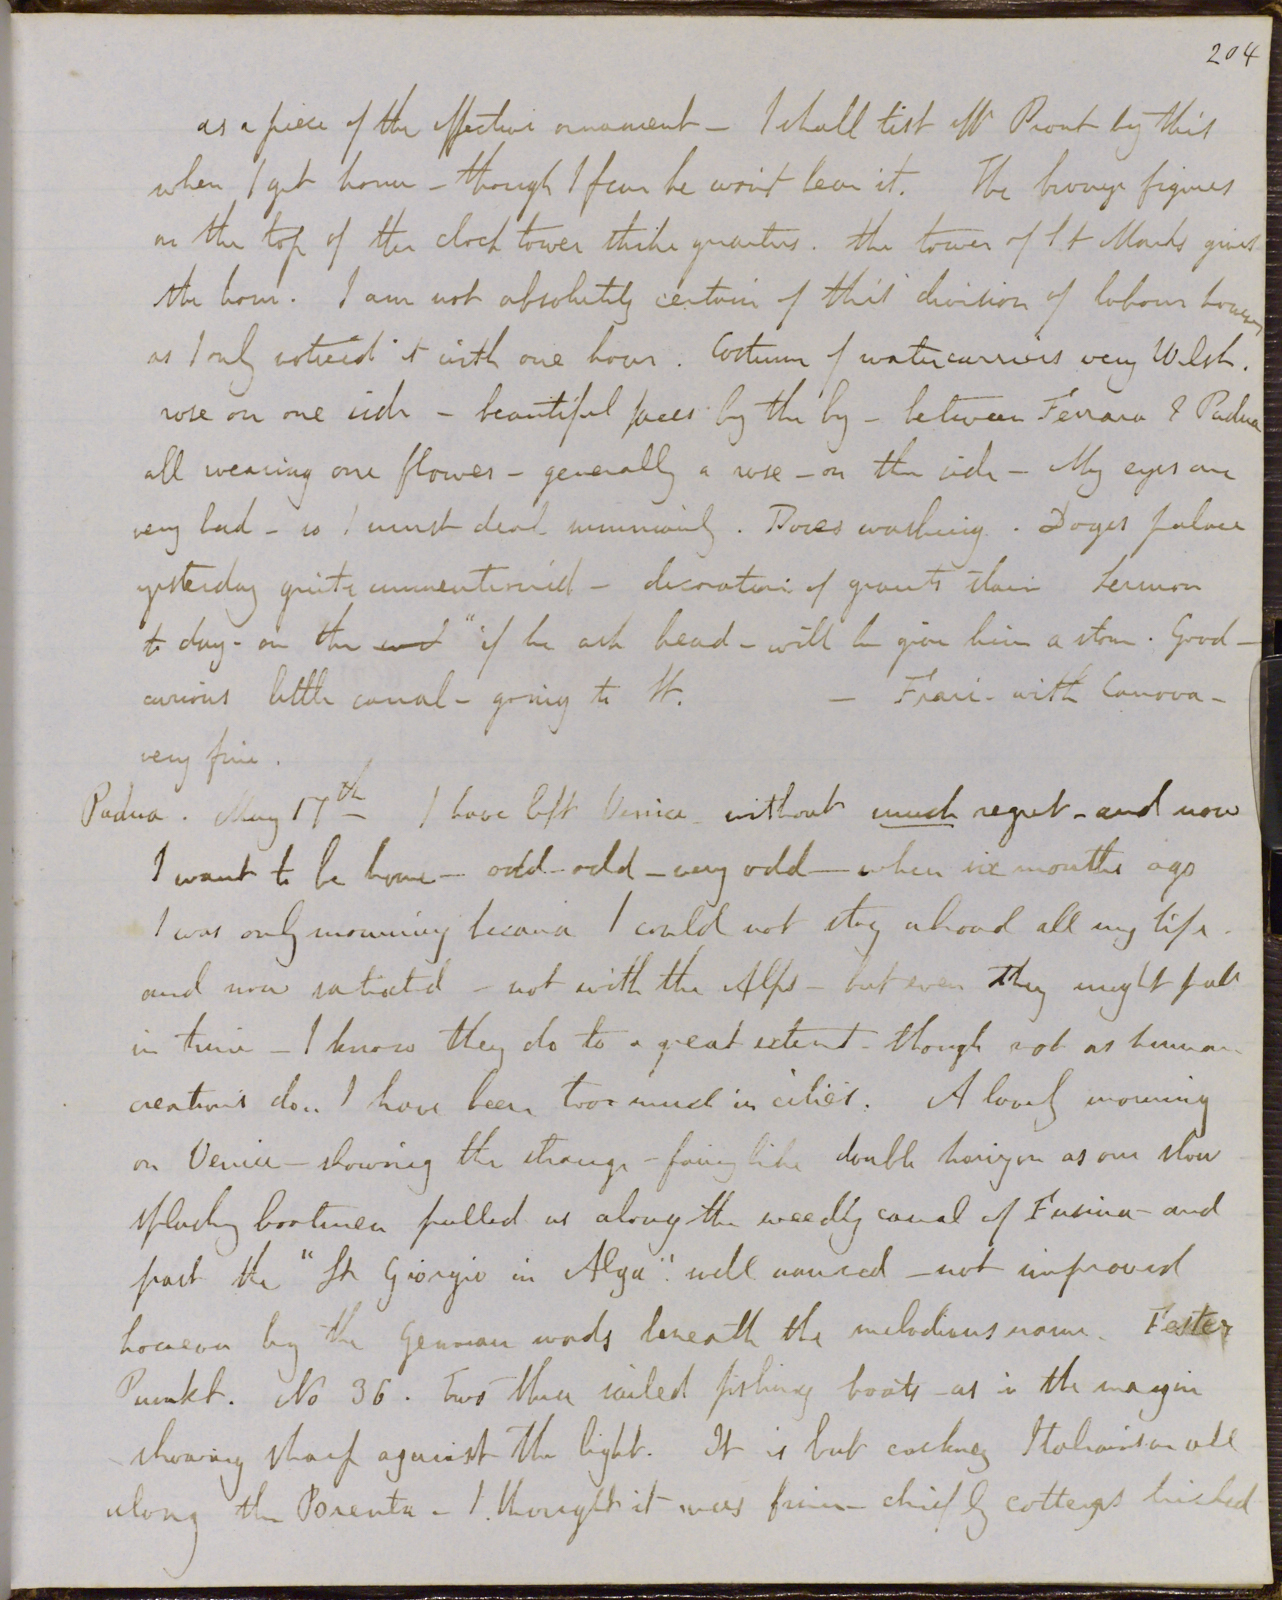 204
as a piece of the effective ornament - I shall test off Prout by this
when I get home - though I fear he won't bear it. The bronze figures
on the top of the clock tower strike quarters. the tower of St Marks gives
the hour. I am not absolutely certain of this division of labour however
as I only noticed it with one hour. Costume of watercarriers very Welsh.
rose on one side - beautiful faces by the by - between Ferrara & Padua
all wearing one flower - generally a rose - on the side - My eyes are
very bad - so I must deal summarily. Doves washing. Doges palace
yesterday quite unmentioned - decoration of giants stair Sermon
to day - on the end "if he ask bead - will he give him a stone. Good -
curious little canal - going to St. - Frari - with Canova -
very fine.
Padua. May 17th I have left Venice without much regret - and now
I want to be home - odd - odd - very odd - when six months ago
I was only mourning because I could not stay abroad all my life.
and now satiated - not with the Alps - but even they might pall
in time - I know they do to a great extent - though not as human
creations do.. I have been too much in cities. A lovely morning
on Venice - showing the strange - fairylike double horizon as our slow
splashy boatmen pulled us along the weedy canal of Fusina - and
past the "St Giorgio in Alga". well named - not improved
however by the German words beneath the melodious name. Fester
Punkt. No 36. Two three sailed fishing boats - as in the margin
showing sharp against the light. It is but cockney Italianism all
along the Brenta - I thought it was finer - chiefly cottages bricked